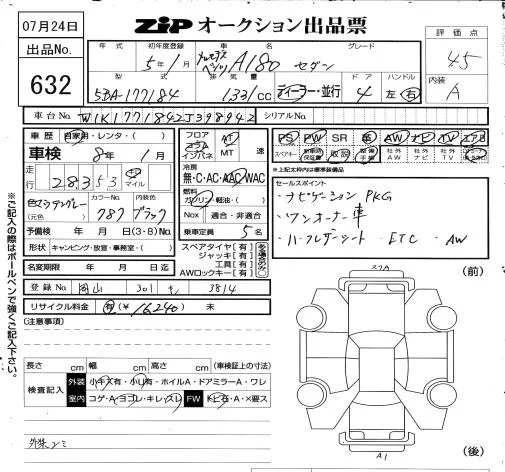 07月24日
ZiP オークション出品票
出品No.
632
評価点
4.5
内装
A
年式 初年度登録 車名 グレード
5年1月 メルセデスベンツ A180 セダン
型式 排気量 ドア ハンドル
5BA-177184 1331cc ディーラー・並行 4 左 右
車台No. W1K1771842J398942 シリアルNo.
車歴 自家用・レンタ・( )
車検 8年1月
走行 28353 キロ マイル
色 マウンテングレー (元色)
カラーNo. 787
内装色 ブラック
予備検 年 月 日(3・8)No.
形状 キャンピング・放宣・事務室・( )
名変期限 年 月 日迄
フロア コラム インパネ
AT MT 速
冷房
無・C・AC・AAC・WAC
燃料
ガソリン・軽油・( )
Nox 適合・非適合
乗車定員 5名
スペアタイヤ[有]
ジャッキ[有]
工具[有]
AWロックキー[有]
ある場合のみ○
PS PW SR 革 AW ナビ TV エアB
スペアキー 新車時保証書 取説 整備手帳 社外AW 社外ナビ 社外TV
※上記太枠内は標準装備品
セールスポイント
・ナビゲーション PKG
・ワンオーナー車
・ハーフレザーシート ・ETC ・AW
登録No. 岡山 301 3814
リサイクル料金 有(¥16240) 未
[注意事項]
長さ cm 幅 cm 高さ cm (車検証上の寸法)
検査記入 外装 小キズ有・小凹有・ホイルA・ドアミラーA・ワレ
室内 コゲ・A・ヨゴレ・キレ・スレ FW トビ石・A・X要ス
(前)
(後)
A1
※ご記入の際はボールペンで強くご記入下さい。